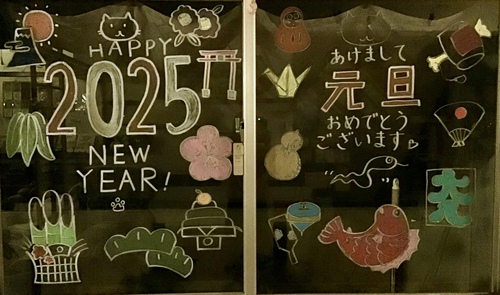 HAPPY
2025
NEW
YEAR!
あけまして
元旦
おめでとう
ございます